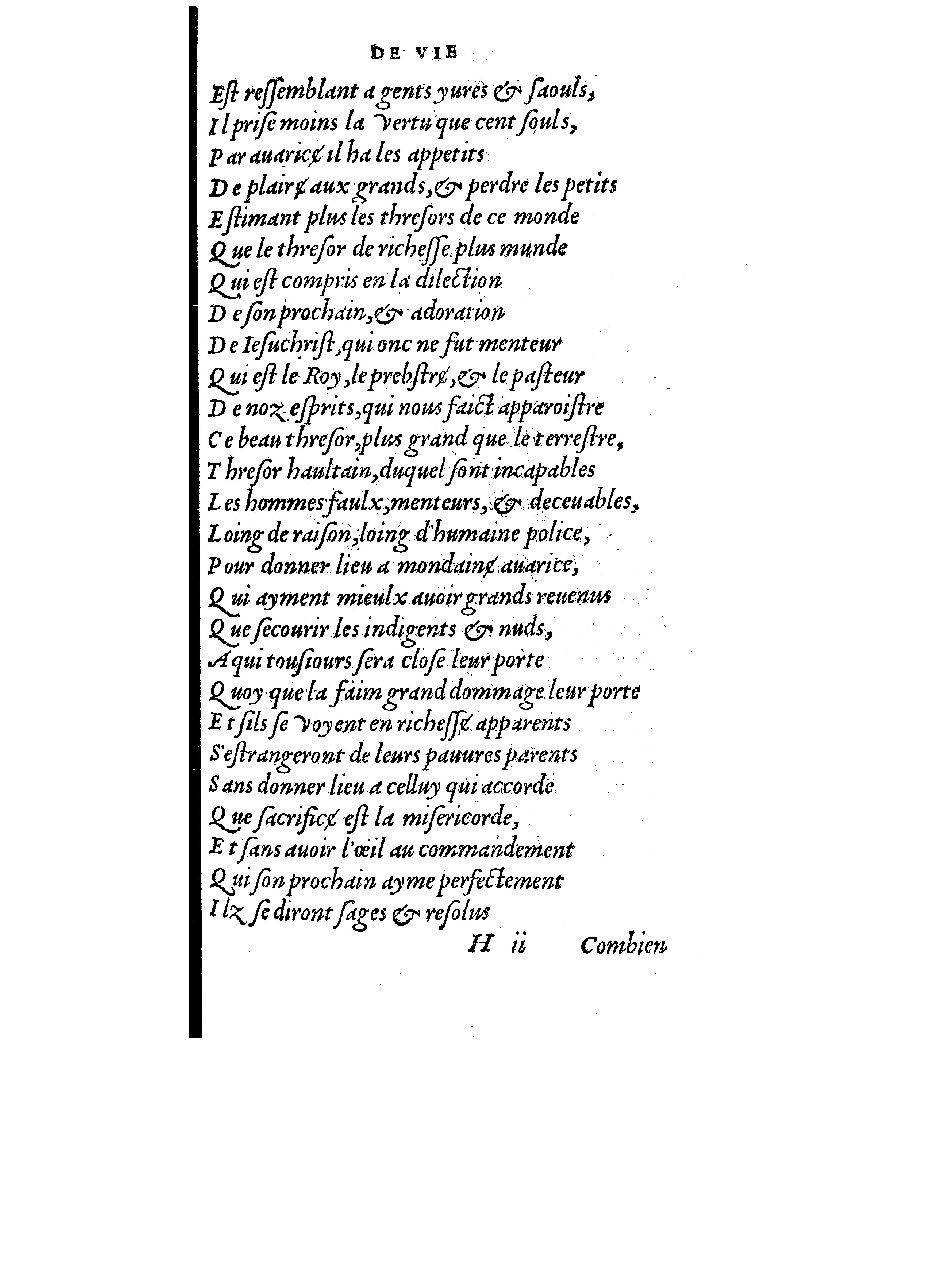 DE VIE
Eſt reſſemblant a gents yures & ſaouls,
Il priſe moins la Vertu que cent ſouls,
Par auaricɇ il ha les appetits
De plairɇ aux grands, & perdre les petits
Eſtimant plus les threſors de ce monde
Que le threſor de richeſſe plus munde
Qui eſt compris en la dilection
De ſon prochain, & adoration
De Ieſuchriſt, qui onc ne fut menteur
Qui eſt le Roy, le prebſtrɇ, & le paſteur
De noz eſprits, qui nous faict apparoiſtre
Ce beau threſor, plus grand que le terreſtre,
Threſor haultain, duquel ſont incapables
Les hommes faulx, menteurs, & deceuables,
Loing de raiſon, loing d'humaine police,
Pour donner lieu a mondainɇ auarice,
Qui ayment mieulx auoir grands reuenus
Que ſecourir les indigents & nuds,
A qui touſiours ſera cloſe leur porte
Quoy que la faim grand dommage leur porte
Et ſils ſe Voyent en richeſſɇ apparents
S'eſtrangeront de leurs pauures parents
Sans donner lieu a celluy qui accorde
Que ſacrificɇ eſt la miſericorde,
Et ſans auoir l'œil au commandement
Qui ſon prochain ayme perfectement
Ilz ſe diront ſages & reſolus
H ii Combien